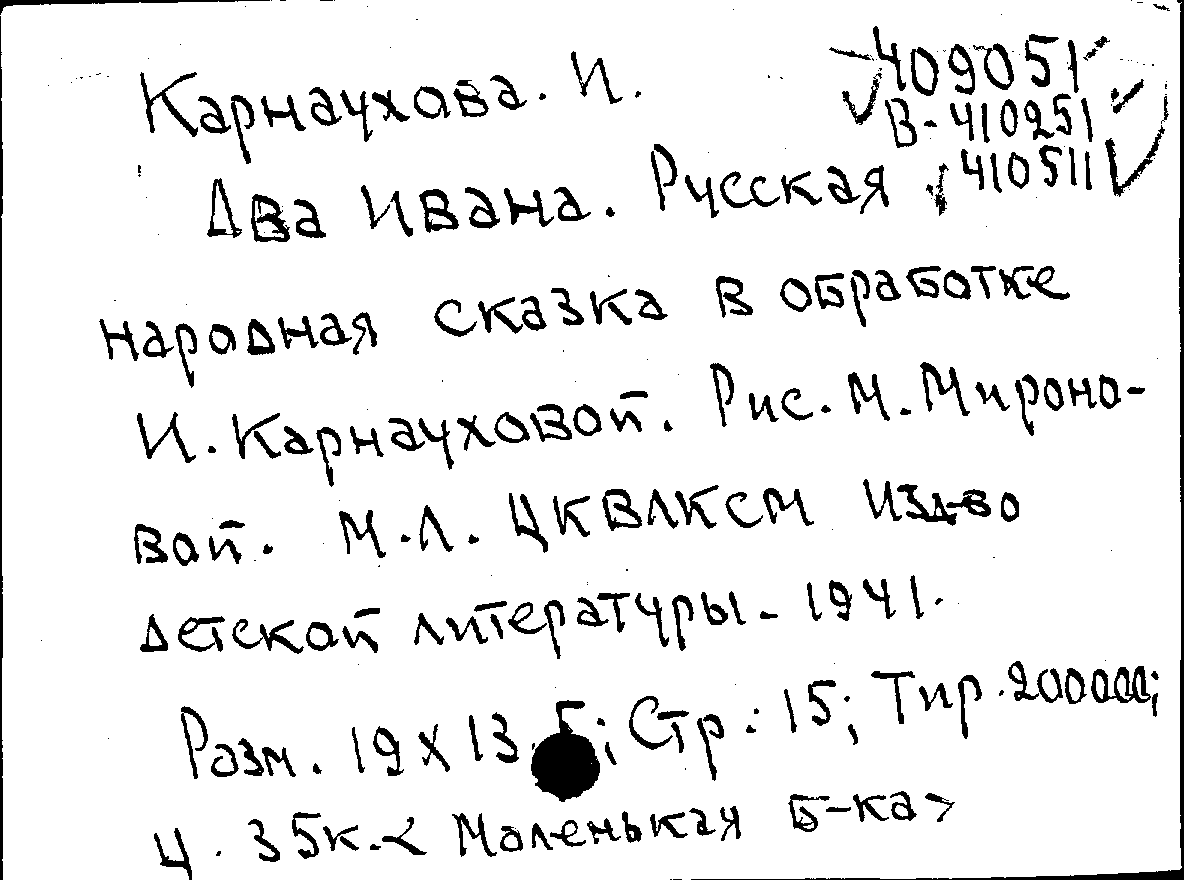 Карнаухова. И.
409051
В-410251
410511
Два Ивана. Русская
народная сказка в обработке
И. Карнауховой. Рис. М. Мироно-
вой. М.Л. ЦКВЛКСМ Изд-во
детской литературы - 1941.
Разм. 19х13,5; Стр.: 15; Тир. 200000;
Ц. 35к. < Маленькая б-ка >